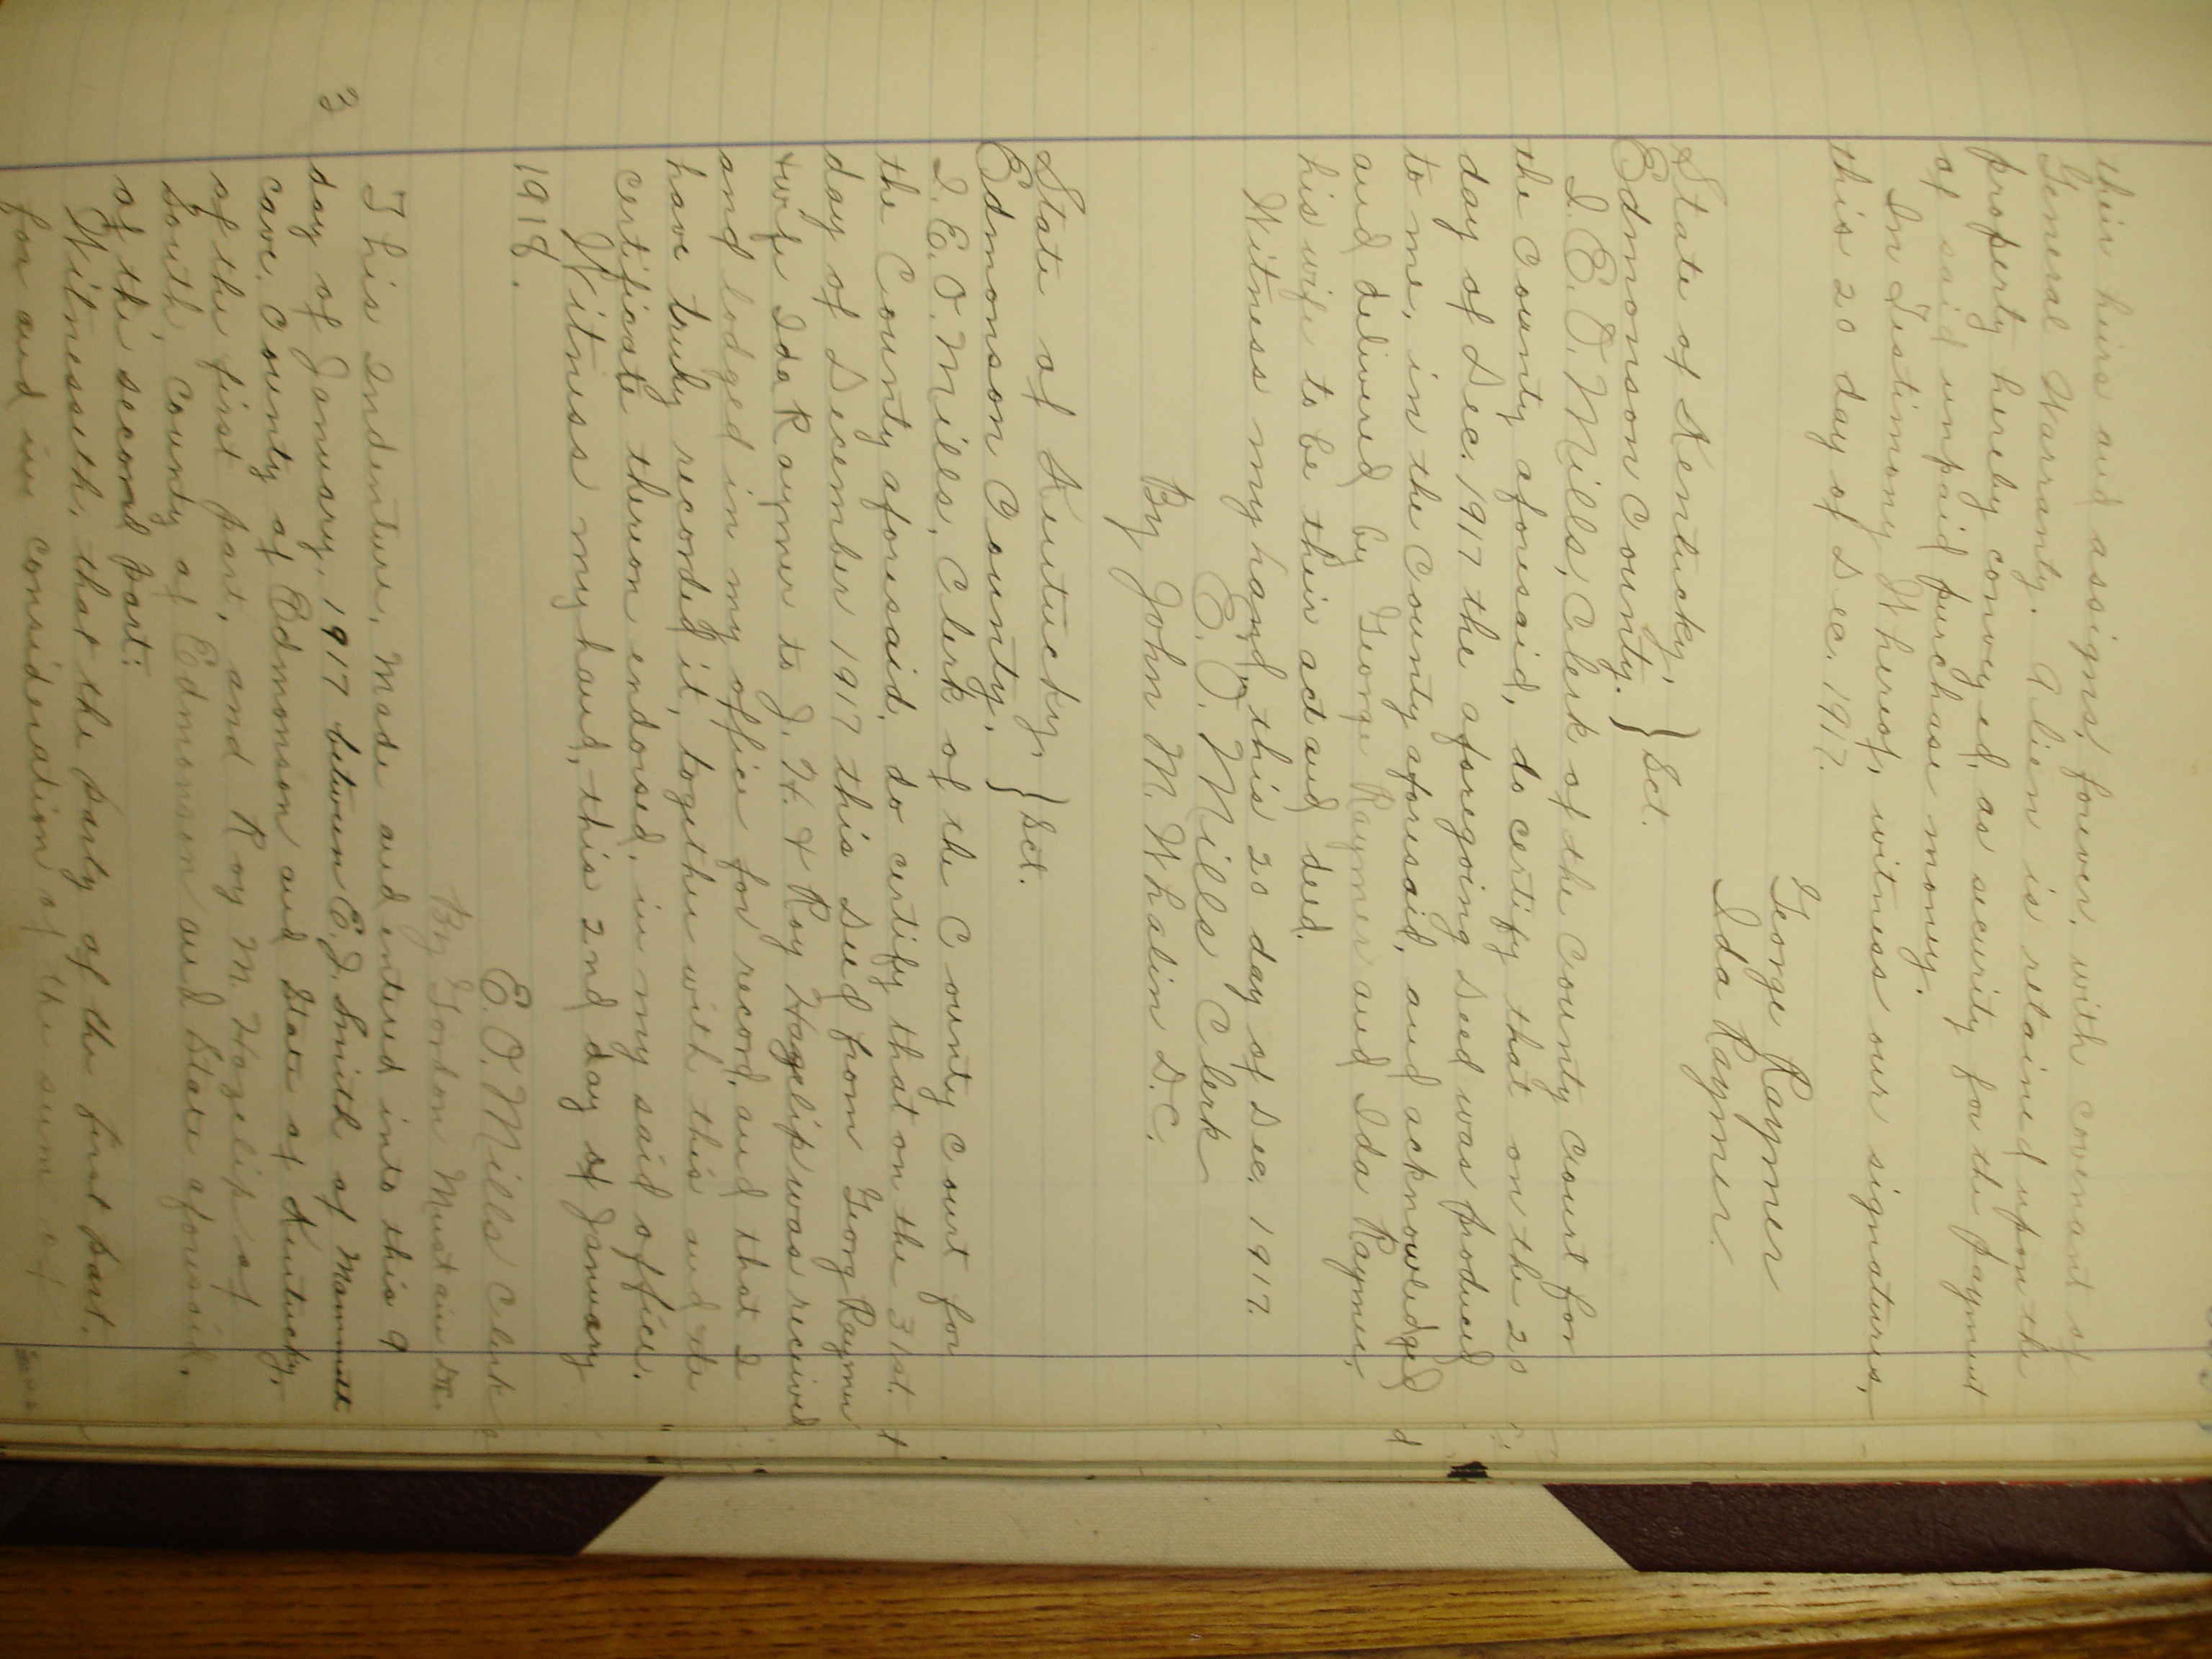 their heirs and assigns, forever, with covenant of
General Warranty. A lien is retained upon the
property hereby conveyed, as security for the payment
of said unpaid purchase money.
In Testimony Whereof, witness our signatures,
this 20 day of Dec. 1917.
George Raymer
Ida Raymer.
State of Kentucky, } Sct.
Edmonson County.
I. E. O. Mills, Clerk of the County Court for
the County aforesaid, do certify that on the 20
day of Dec. 1917 the aforegoing Deed was produced
to me, in the County aforesaid, and acknowledged
and delivered by George Raymer and Ida Raymer,
his wife to be their act and deed.
Witness my hand, this 20 day of Dec. 1917.
E. O. Mills Clerk
By John M. Whalin D.C.
State of Kentucky, } Sct.
Edmonson County,
I. E. O. Mills, Clerk of the County Court for
the County aforesaid, do certify that on the 31st.
day of December 1917 this Deed from Georg Raymer
+ wife Ida Raymer to J. H. & Roy Hazelip was received
and lodged in my office for record, and that I
have truly recorded it, together with this and the
certificate thereon endorsed, in my said office.
Witness my hand, this 2nd day of January
1918.
E. O. Mills Clerk
By Gordon Mustain DC.
This Indenture, Made and entered into this 9
day of January, 1917 between E. J. Smith of Mammoth
cave, County of Edmonson and State of Kentucky,
of the first part, and Roy M. Hazelip of
South, County of Edmonson and State aforesaid,
of the second part:
Witnesseth, that the party of the first part.
for and in consideration of the sum of
3